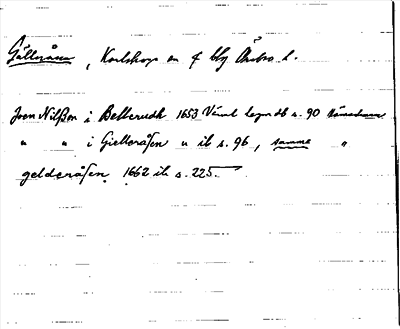 Gälleråsen, Karlskoga sn o blg Örebro l.
Joen Nilsson i Betterudh 1653 Värml lagm db s. 90
" " i Gietteråsen " ib s. 96, samma "
gelderåsen 1662 ib s. 225.